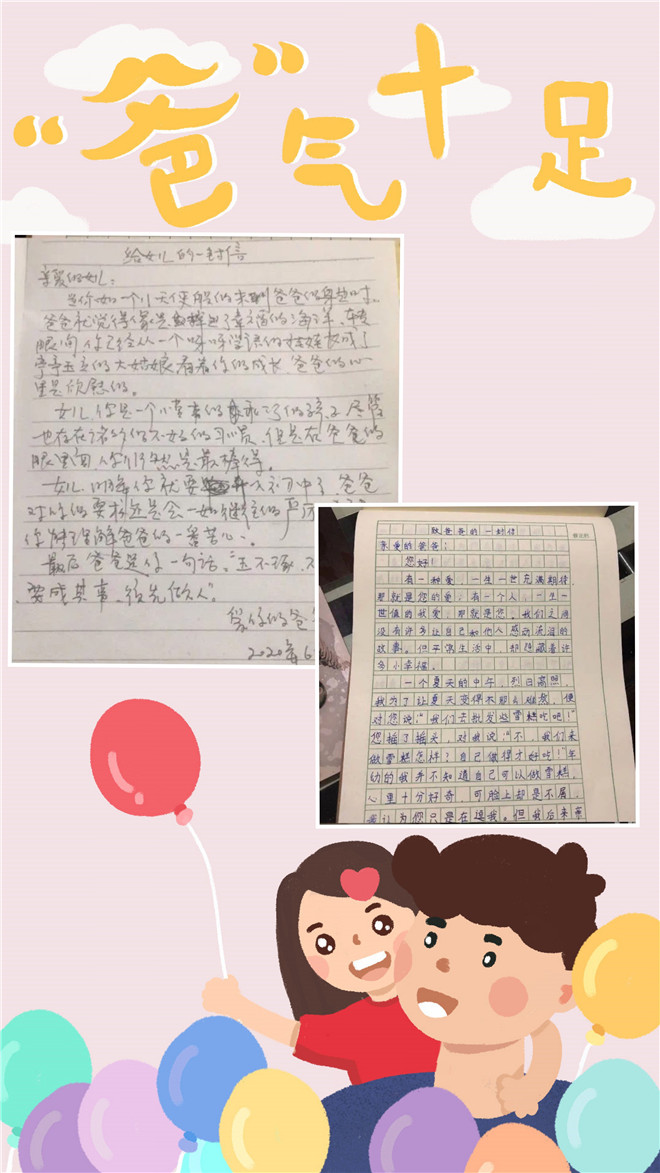 “爸”气十足
给女儿的一封信
亲爱的女儿：
当你如一个小天使般的来到爸爸的身边时，
爸爸就觉得像是 幸福的海洋，转
眼间，你已经从一个呀呀学语的娃娃长成了
亭亭玉立的大姑娘，看着你的成长，爸爸的心
里是欣慰的。
女儿，你是一个 的孩子，尽管
也存在诸多的不好的习惯，但是在爸爸的
眼里面，你仍然是最棒得。
女儿，明年你就要 入初中了，爸爸
对你的要求还是会一如继往的严
你 理解爸爸的一番苦心。
最后，爸爸送你一句话：“玉不琢，不
要成其事，后先做人”
爱你的爸
2020年6
致爸爸的一封信
亲爱的爸爸：
您好！
有一种爱，一生一世充满期待，
那就是您的爱；有一个人，一生一
世值的我爱，那就是您。我们之间
没有许多让自己和他人感动流泪的
故事。但平偶生活中，却隐藏着许
多小幸福。
一个夏天的中午，烈日高照，
我为了让夏天变得不那么炎热，便
对您说：“我们去批发些雪糕吃吧！”
您摇了摇头，对我说：“不，我们来
做雪糕怎样？自己做得才好吃！”年
幼的我并不知道自己可以做雪糕，
心里十分好奇，可脸上却是不屑，
我认为您只是在逗我。但我后来